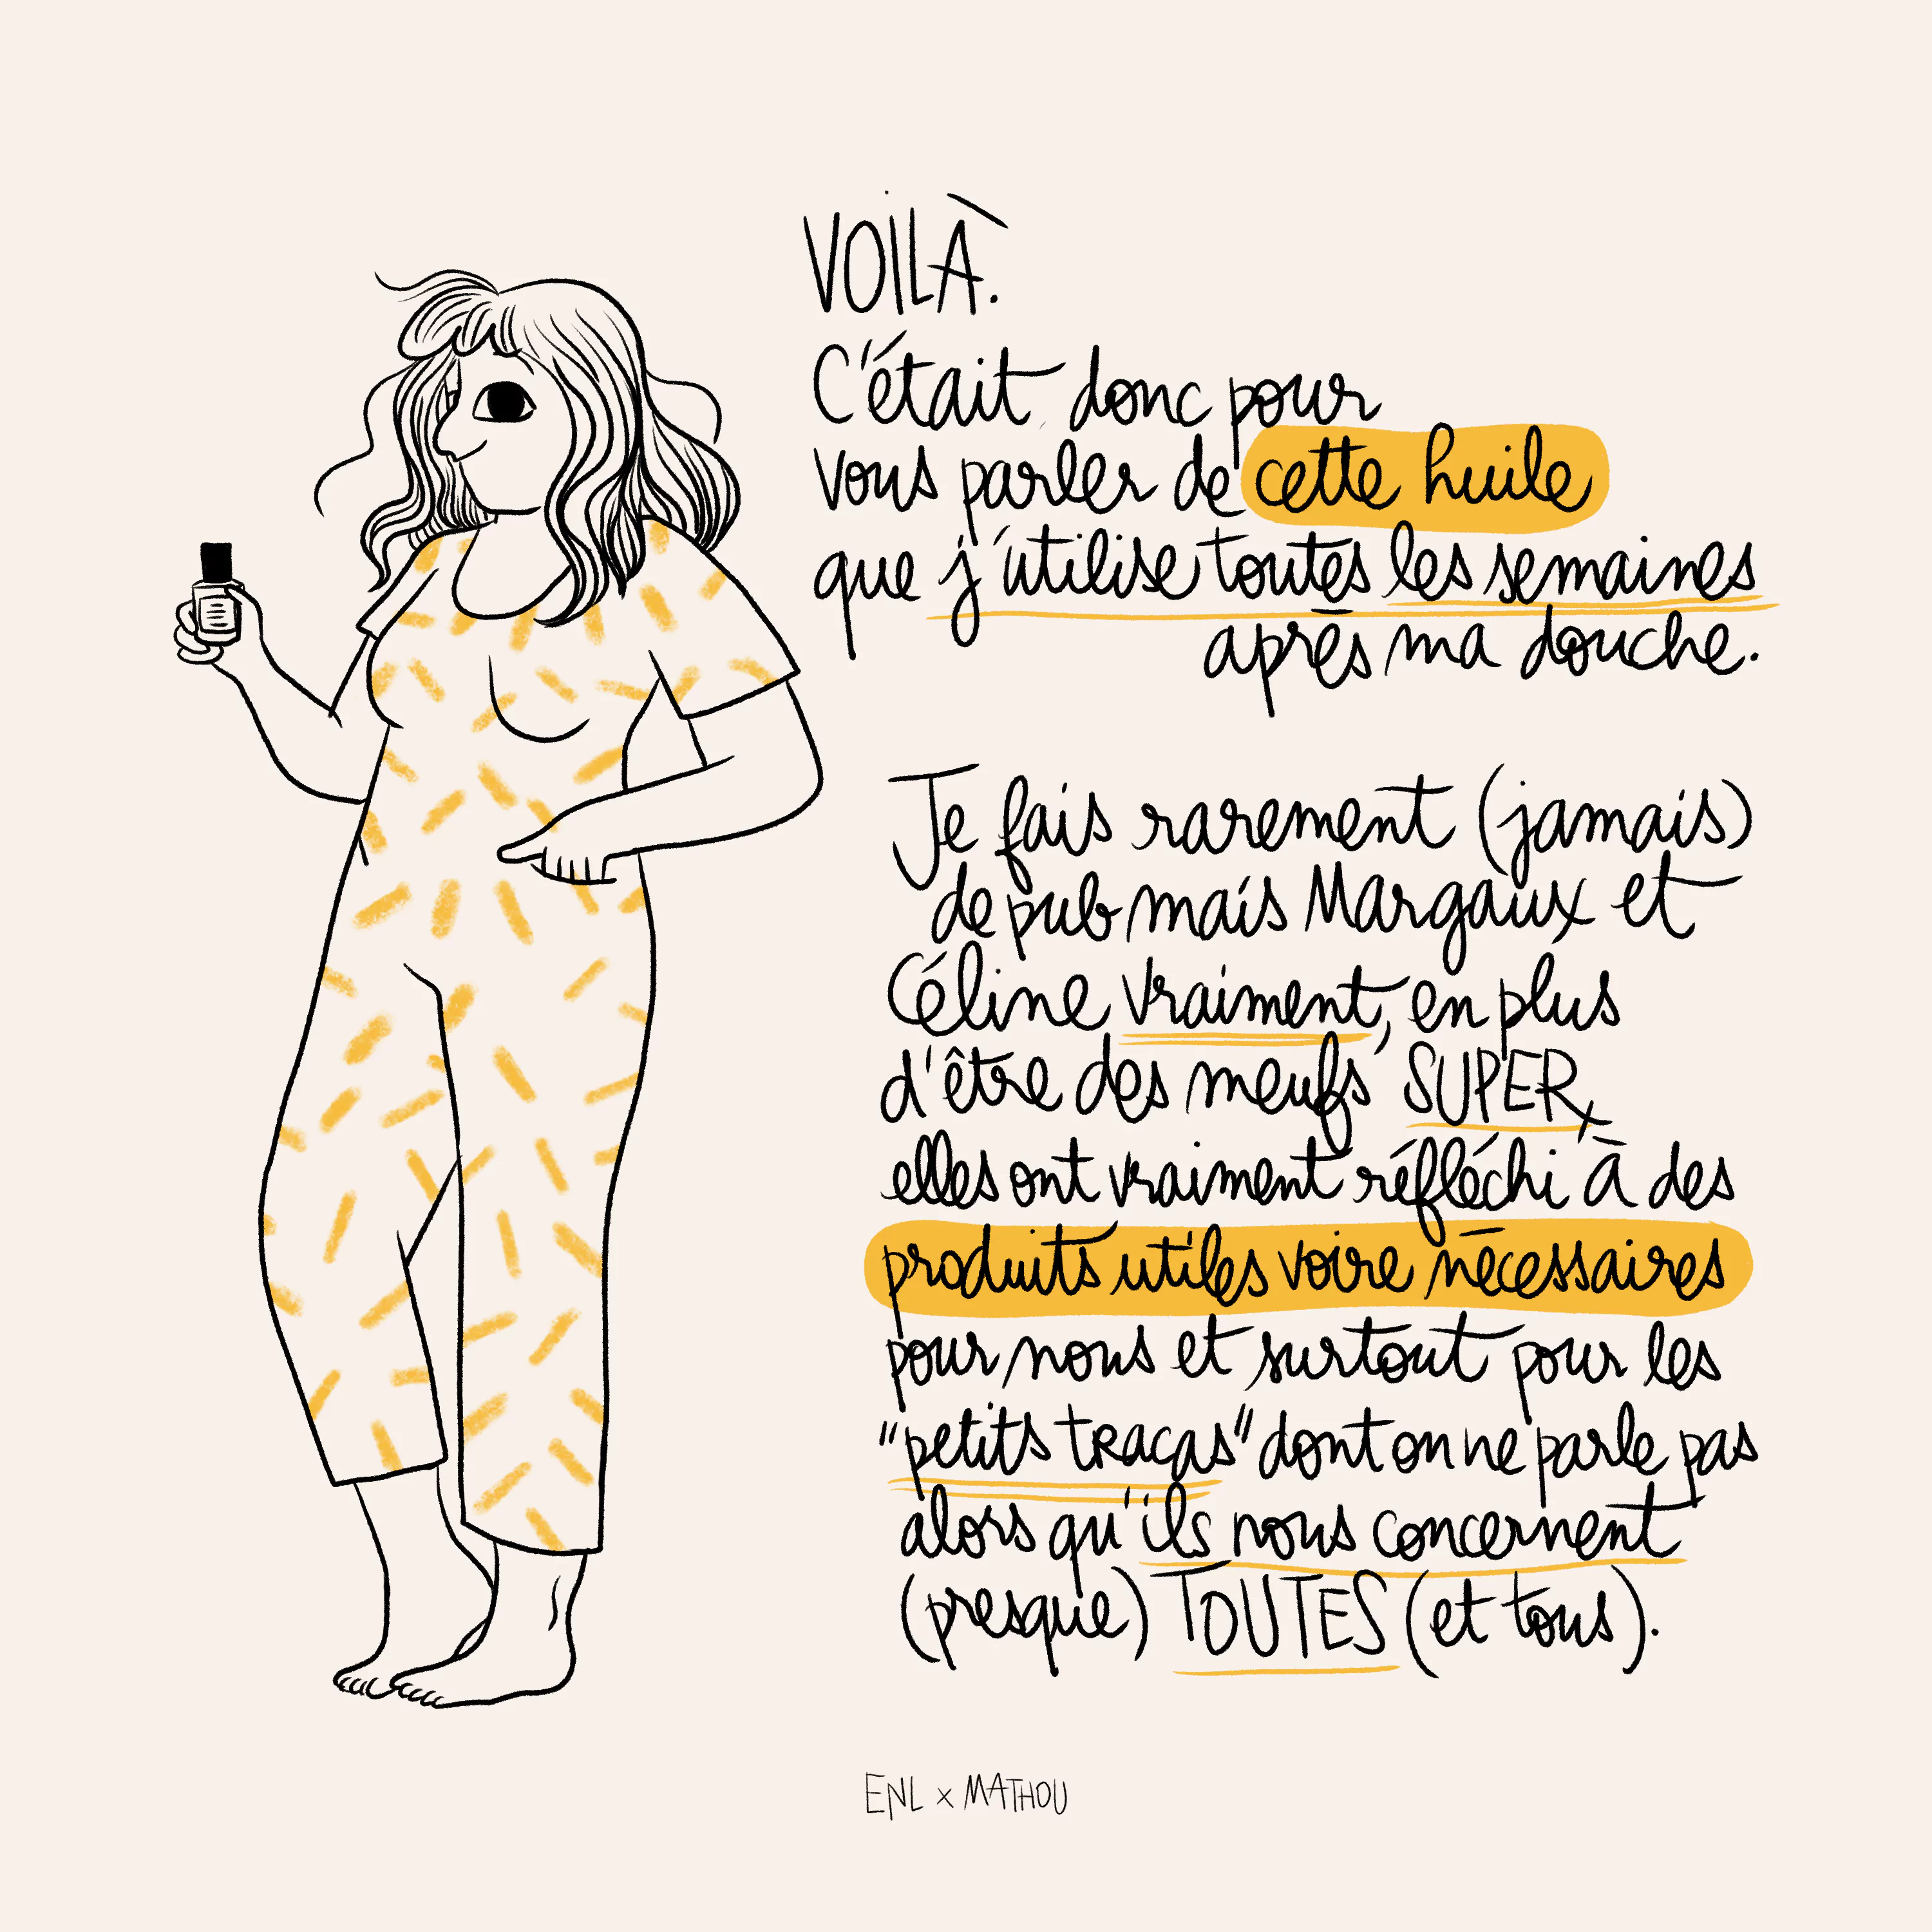 VOILÀ.
C'était donc pour
vous parler de cette huile
que j'utilise toutes les semaines
après ma douche.
Je fais rarement (jamais)
de pub mais Margaux et
Céline vraiment, en plus
d'être des meufs SUPER,
elles ont vraiment réfléchi à des
produits utiles voire nécessaires
pour nous et surtout pour les
"petits tracas" dont on ne parle pas
alors qu'ils nous concernent
(presque) TOUTES (et tous).
ENL x MATHOU